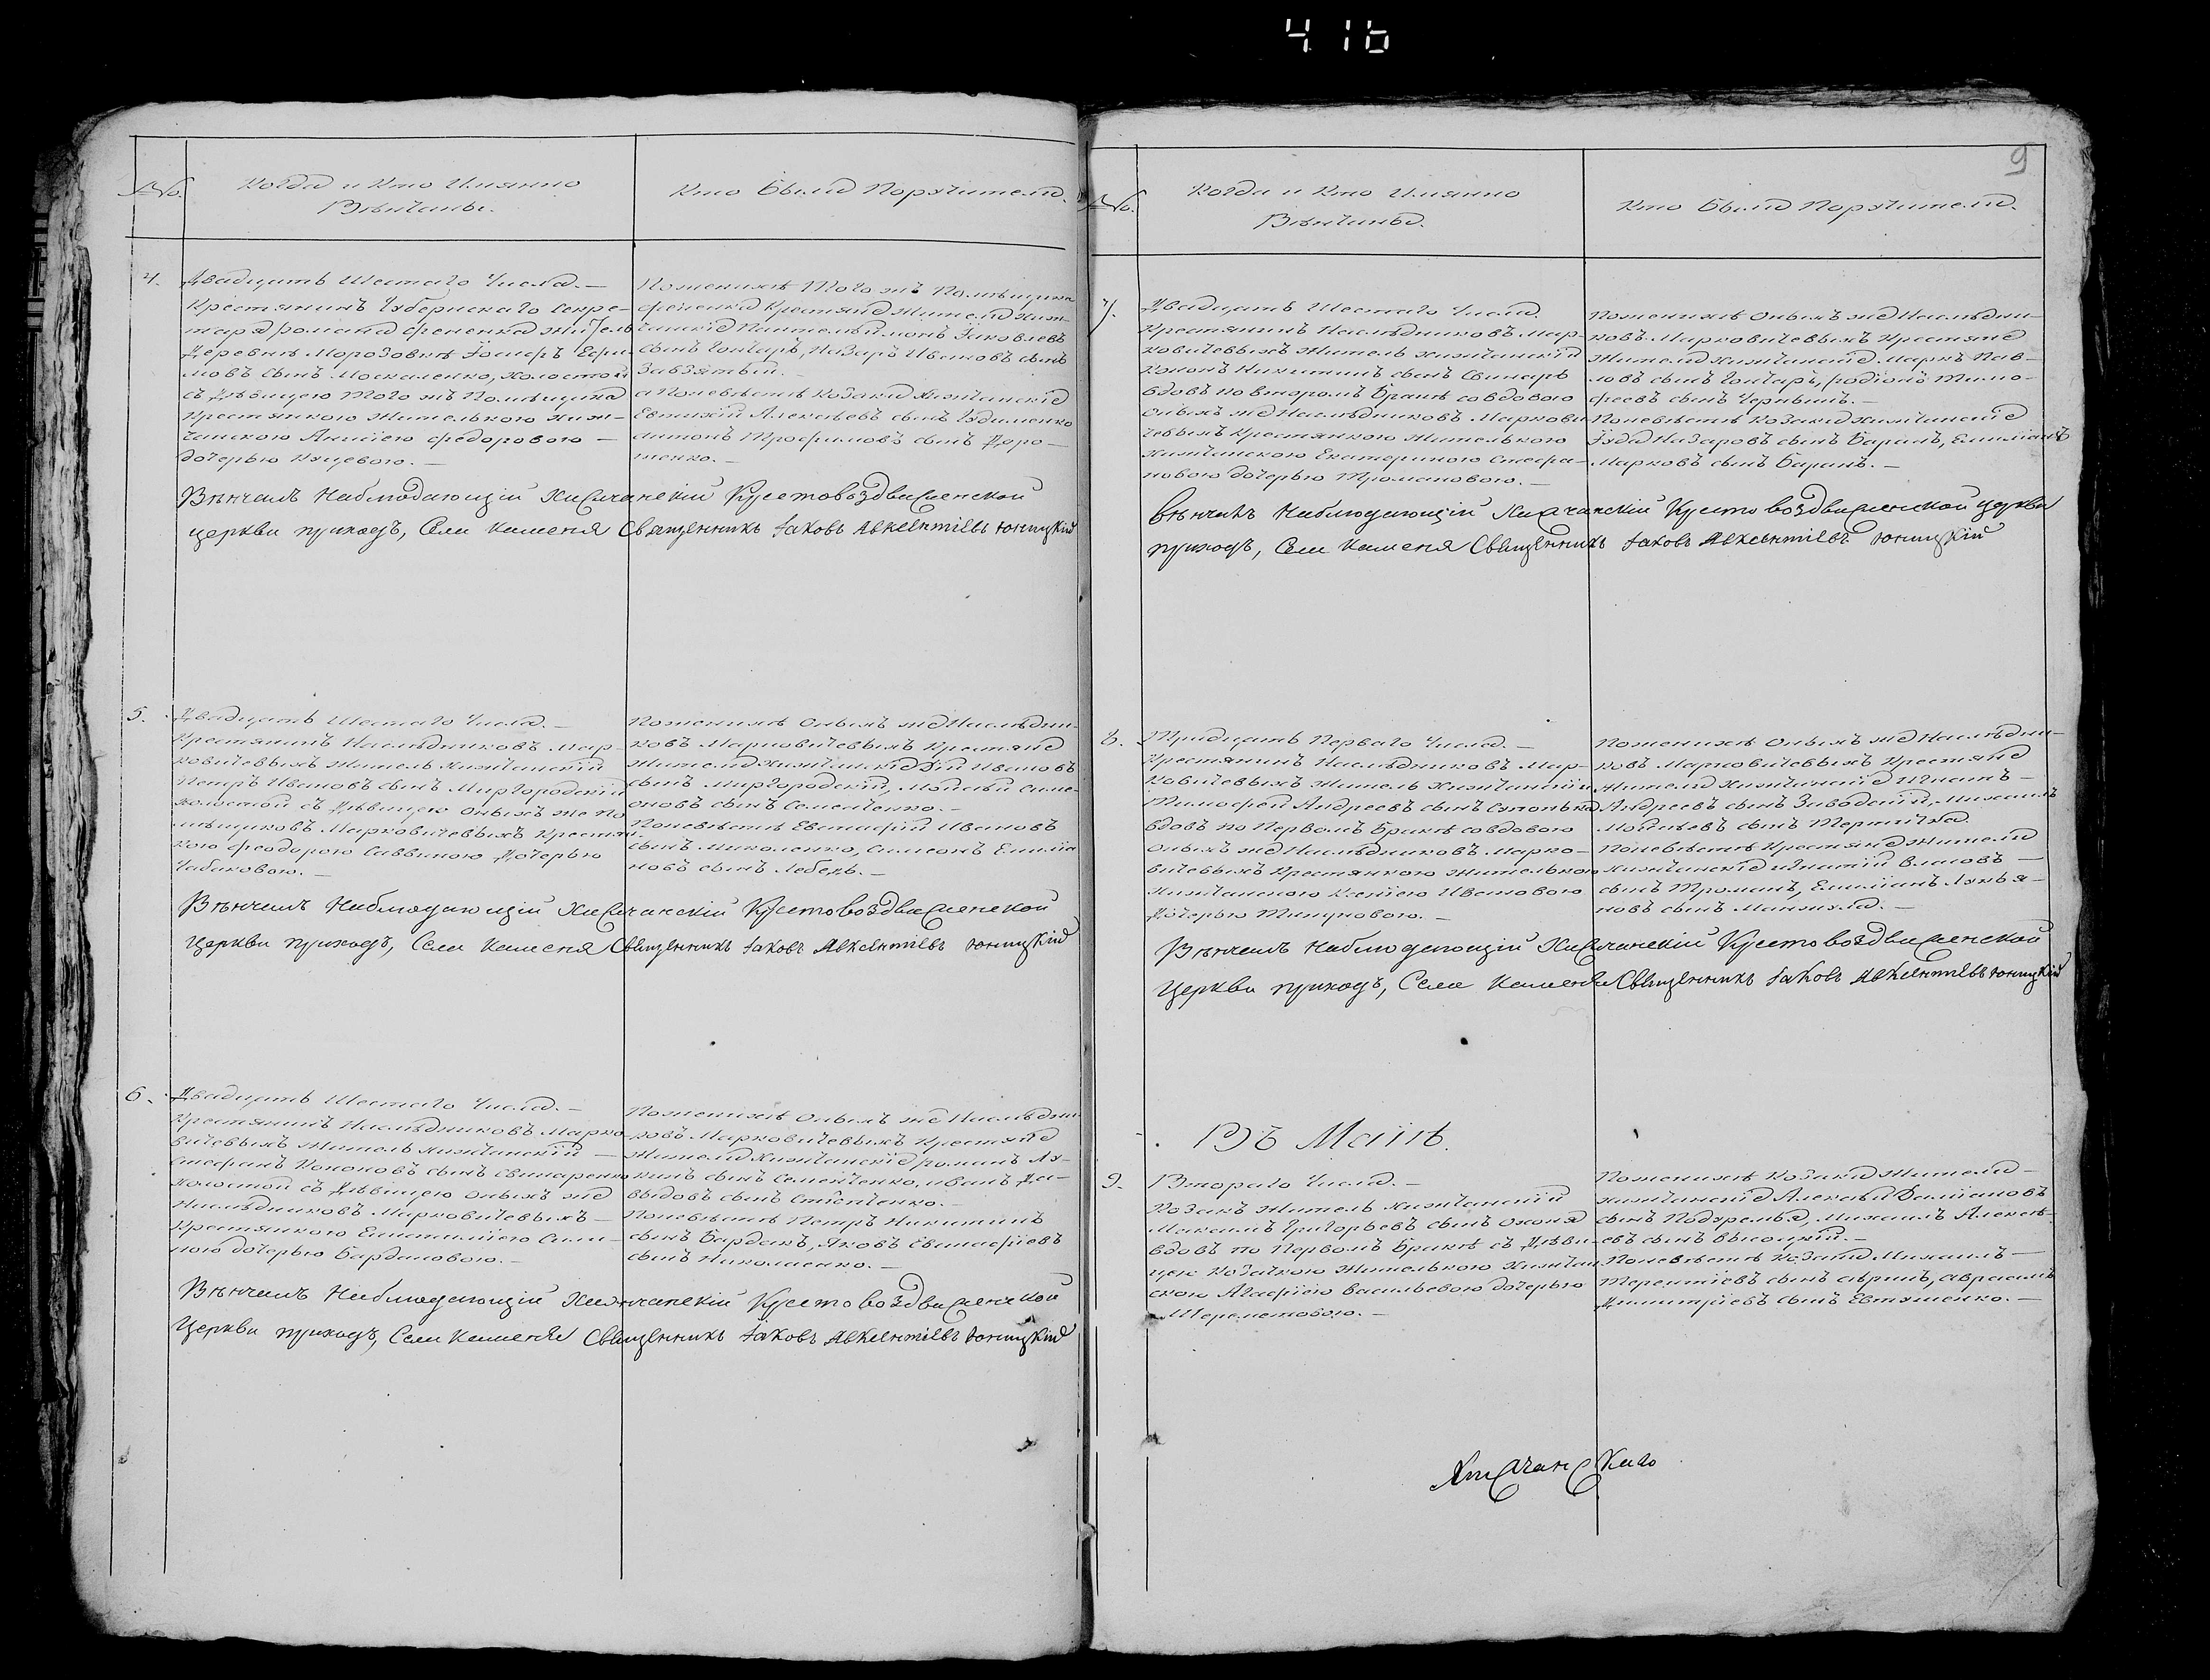 416
№.
Когда и Кто Имянно
Вѣнчаны.
Кто Были Поручители.
4.
Двадцать Шестаго Числа. —
Крестянинъ Губернскаго Секре-
таря Романа Фененка житель
Деревнѣ Морозовки Іосифъ Ефи-
мовъ сынъ Москаленко, холостой
съ Дѣвицею Того жъ Помѣщика
Крестянкою Жителькою Хиж-
чанскою Анною Федоровою —
дочерью Куцевою. —
Поженихѣ Того жъ Помѣщика
Фененка Крестяне Жители Хиж-
чанскіе Пантелѣймонъ Яковлевъ
сынъ Гончаръ, Назаръ Ивановъ сынъ
Завзятый. —
а Поневѣстѣ Козаки Хижчанскіе
Евтихій Алексѣевъ сынъ Гудименко
антонъ Трофимовъ сынъ Доро-
шенко. —
Вѣнчалъ Наблюдающій Хижчанскій Крестовоздвиженской
церкви приходъ, Села Каменя Священникъ Іаковъ Авксентіевъ Юницкій
5.
Двадцать Шестаго Числа. —
Крестянинъ Наслѣдниковъ Мар-
ковичевыхъ Житель Хижчанскій
Петръ Ивановъ сынъ Миргородскій
холостой съ Дѣвицею оныхъ же По-
мѣщиковъ Марковичевыхъ Крестян-
кою Феодорою Саввиною Дочерью
Чабановою. —
Поженихѣ Оныхъ же Наслѣдни-
ковъ Марковичевыхъ Крестяне
Жители Хижчанскіе Ивановъ
сынъ Миргородскій, Мойсей Симе-
оновъ сынъ Семенченко. —
Поневѣстѣ Евстафій Ивановъ
сынъ Николенко, Симеонъ Емилія-
новъ сынъ Лебедь. —
Вѣнчалъ Наблюдающій Хижчанскій Крестовоздвиженской
Церкви приходъ, Села Каменя Священникъ Іаковъ Авксентіевъ Юницкій
6.
Двадцать Шестаго Числа. —
Крестянинъ Наслѣдниковъ Марко-
вичевыхъ Житель Хижчанскій —
Стефанъ Кононовъ сынъ Свинаренко
Холостой съ Дѣвицею оныхъ же
Наслѣдниковъ Марковичевыхъ —
Крестянкою Епистиміею Сими-
ною дочерью Бардаковою. —
Поженихѣ Оныхъ же Наслѣдни-
ковъ Марковичевыхъ Крестяне
Жители Хижчанскіе Романъ Лу-
кинъ сынъ Семенченко, иванъ Да-
выдовъ сынъ
Поневѣстѣ Петръ Никитинъ
сынъ Бардакъ, Яковъ Евстафіевъ
сынъ Николаенко. —
Вѣнчалъ Наблюдающій Хижчанскій Крестовоздвиженской
Церкви приходъ, Села Каменя Священникъ Іаковъ Авксентіевъ Юницкій
9
№.
Когда и Кто Имянно
Вѣнчаны.
Кто Были Поручители.
7.
Двадцать Шестаго Числа.
Крестянинъ Наслѣдниковъ Мар-
ковичевыхъ Житель Хижчанскій
Кононъ Никитинъ сынъ Свинарь
вдовъ по второмъ Бракѣ совдовою
оныхъ же Наслѣдниковъ Маркови-
чевыхъ Крестянкою Жителькою
Хижчанскою Екатериною Стефа-
новою дочерью Тромановою. —
Поженихѣ Оныхъ же Наслѣдни-
ковъ Марковичевыхъ Крестяне
Жители Хижчанскіе Маркъ Пав-
ловъ сынъ Гончаръ, Родіонъ Тимо-
феевъ сынъ Черныш. —
Поневѣстѣ Козаки Хижчанскіе
Іуда Назаровъ сынъ Баранъ, Емиліанъ
Марковъ сынъ Баранъ. —
Вѣнчалъ Наблюдающій Хижчанскій Крестовоздвиженской церкви
приходъ, Села Каменя Священникъ Іаковъ Авксентіевъ Юницкій
8.
Тридцать Перваго Числа. —
Крестянинъ Наслѣдниковъ Мар-
ковичевыхъ Житель Хижчанскій
Тимофей Андреевъ сынъ Супонька
вдовъ по Первомъ Бракѣ совдовою
оныхъ же Наслѣдниковъ Марко-
вичевыхъ Крестянкою Жителькою
Хижчанскою Ксеніею Ивановою
Дочерью Тимуновою. —
Поженихѣ Оныхъ же Наслѣдни-
ковъ Марковичевыхъ Крестяне
Жители Хижчанскіе Игнатъ —
Андреевъ сынъ Заводскій, Михаилъ
Мойсѣевъ сынъ
Поневѣстѣ Крестяне Жители
Хижчанскіе Игнатій Власовъ —
сынъ Троманъ, Емиліанъ Лукья-
новъ сынъ Манжула. —
Вѣнчалъ Наблюдающій Хижчанскій Крестовоздвиженской
Церкви приходъ, Села Каменя Священникъ Іаковъ Авксентіевъ Юницкій
Въ Маіѣ.
9.
Втораго Числа. —
Козакъ Житель Хижчанскій
Максимъ Григорьевъ сынъ
вдовъ по Первомъ Бракѣ съ Дѣви-
цею Козачкою Жителькою Хижчан-
скою Агафіею Васильевою дочерью
Шереметовою. —
Поженихѣ Козаки Жители —
Хижчанскіе Алексѣй Даміановъ
сынъ Михаилъ Алексѣ-
евъ сынъ Высоцкій. —
Поневѣстѣ Козаки Михаилъ —
Терентіевъ сынъ авраамъ
Димитріевъ сынъ Евтушенко. —
Хижчанскаго